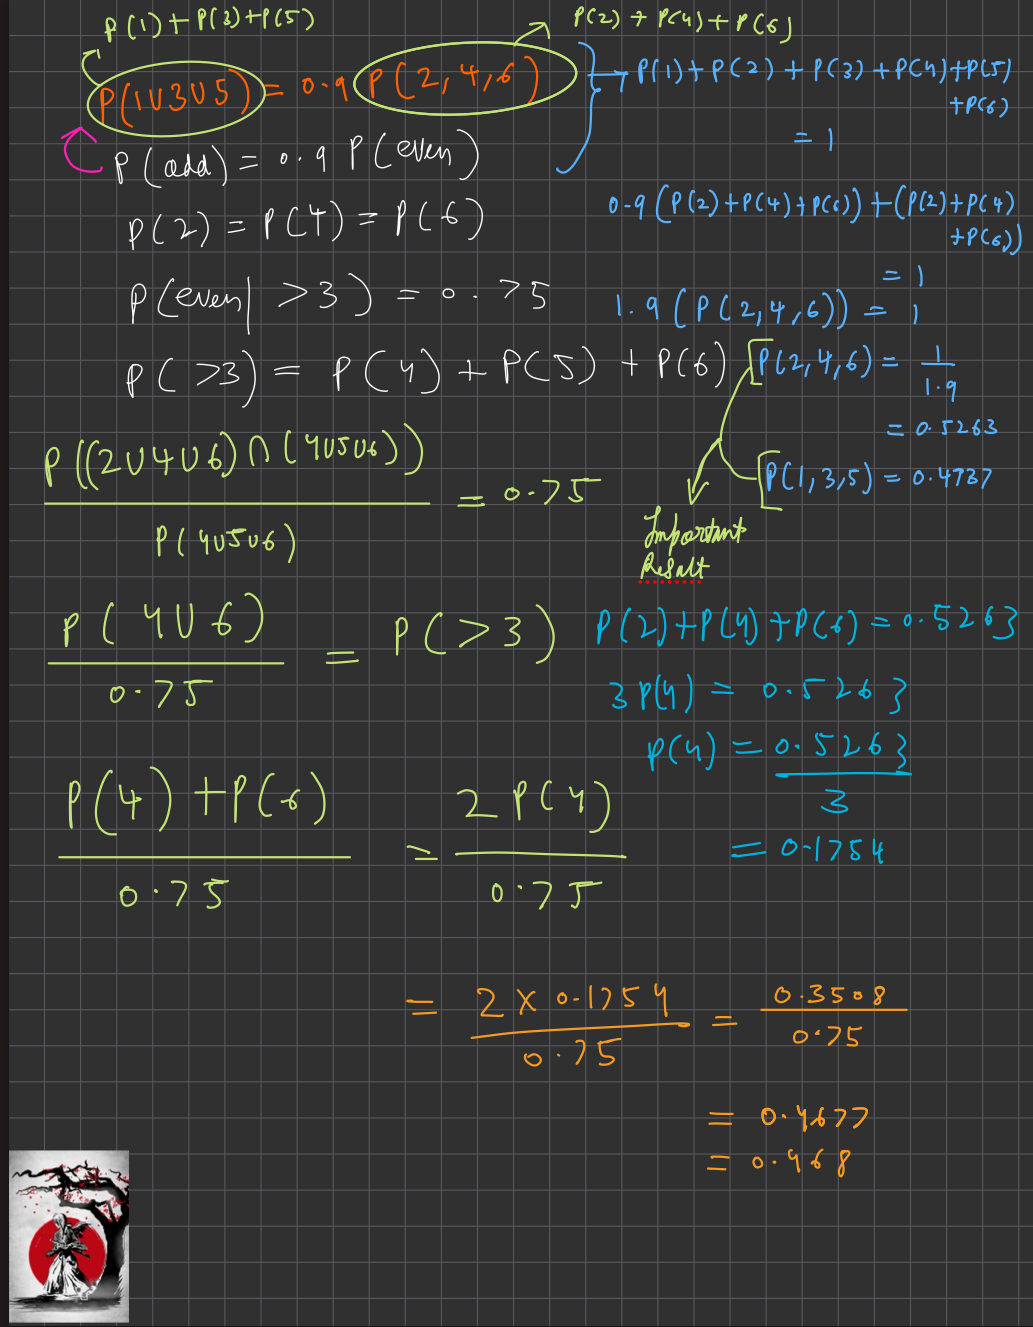 P(1)+P(3)+P(5)
P(2) + P(4) + P(6)
P(1∪3∪5) = 0.9 P(2,4,6)
P(1)+P(2)+P(3)+P(4)+P(5)
+P(6)
= 1
P(odd) = 0.9 P(even)
P(2) = P(4) = P(6)
P(even| >3) = 0.75
P(>3) = P(4) + P(5) + P(6)
0.9(P(2)+P(4)+P(6))+(P(2)+P(4)
+P(6))
= 1
1.9(P(2,4,6)) = 1
P(2,4,6) = 1
1.9
= 0.5263
P(1,3,5) = 0.4737
Important
Result
P((2∪4∪6)∩(4∪5∪6))
P(4∪5∪6)
= 0.75
P(4∪6)
0.75
= P(>3)
P(2)+P(4)+P(6) = 0.5263
3P(4) = 0.5263
P(4) = 0.5263
3
= 0.1754
P(4)+P(6)
0.75
= 2P(4)
0.75
= 2 × 0.1754
0.75
= 0.3508
0.75
= 0.4677
= 0.468